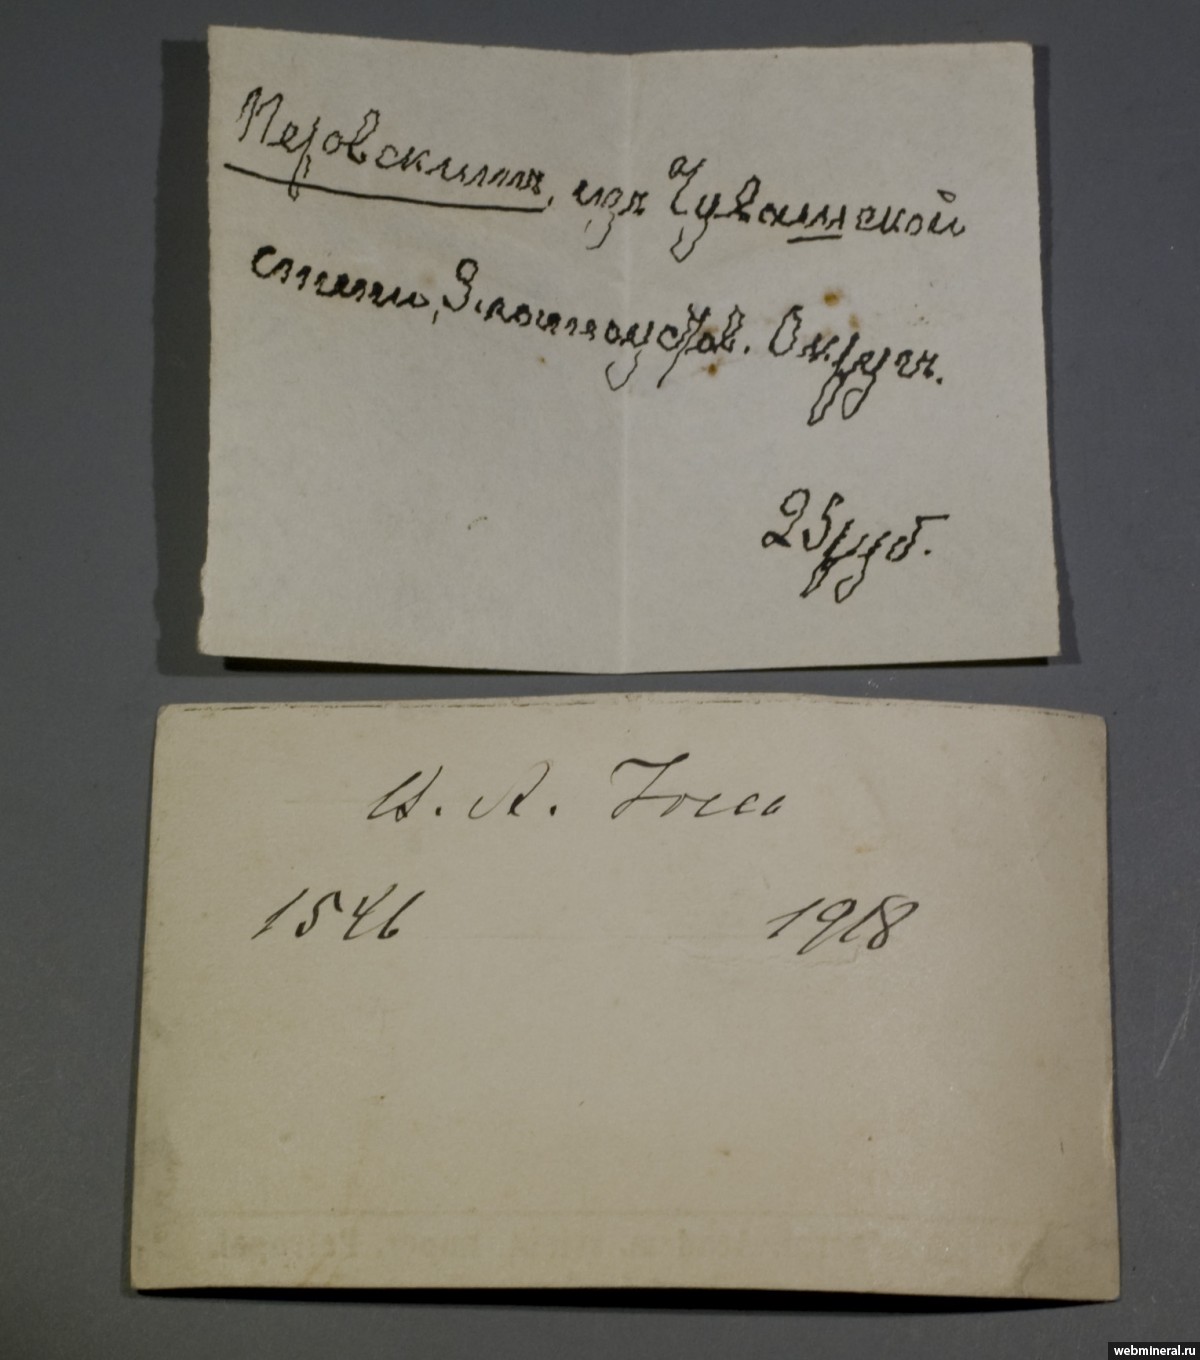 Перовскитъ, изъ Чувашской
степи, Златоустов. Округъ.
25 руб.
И. А. Iосса
1546 1918
webmineral.ru